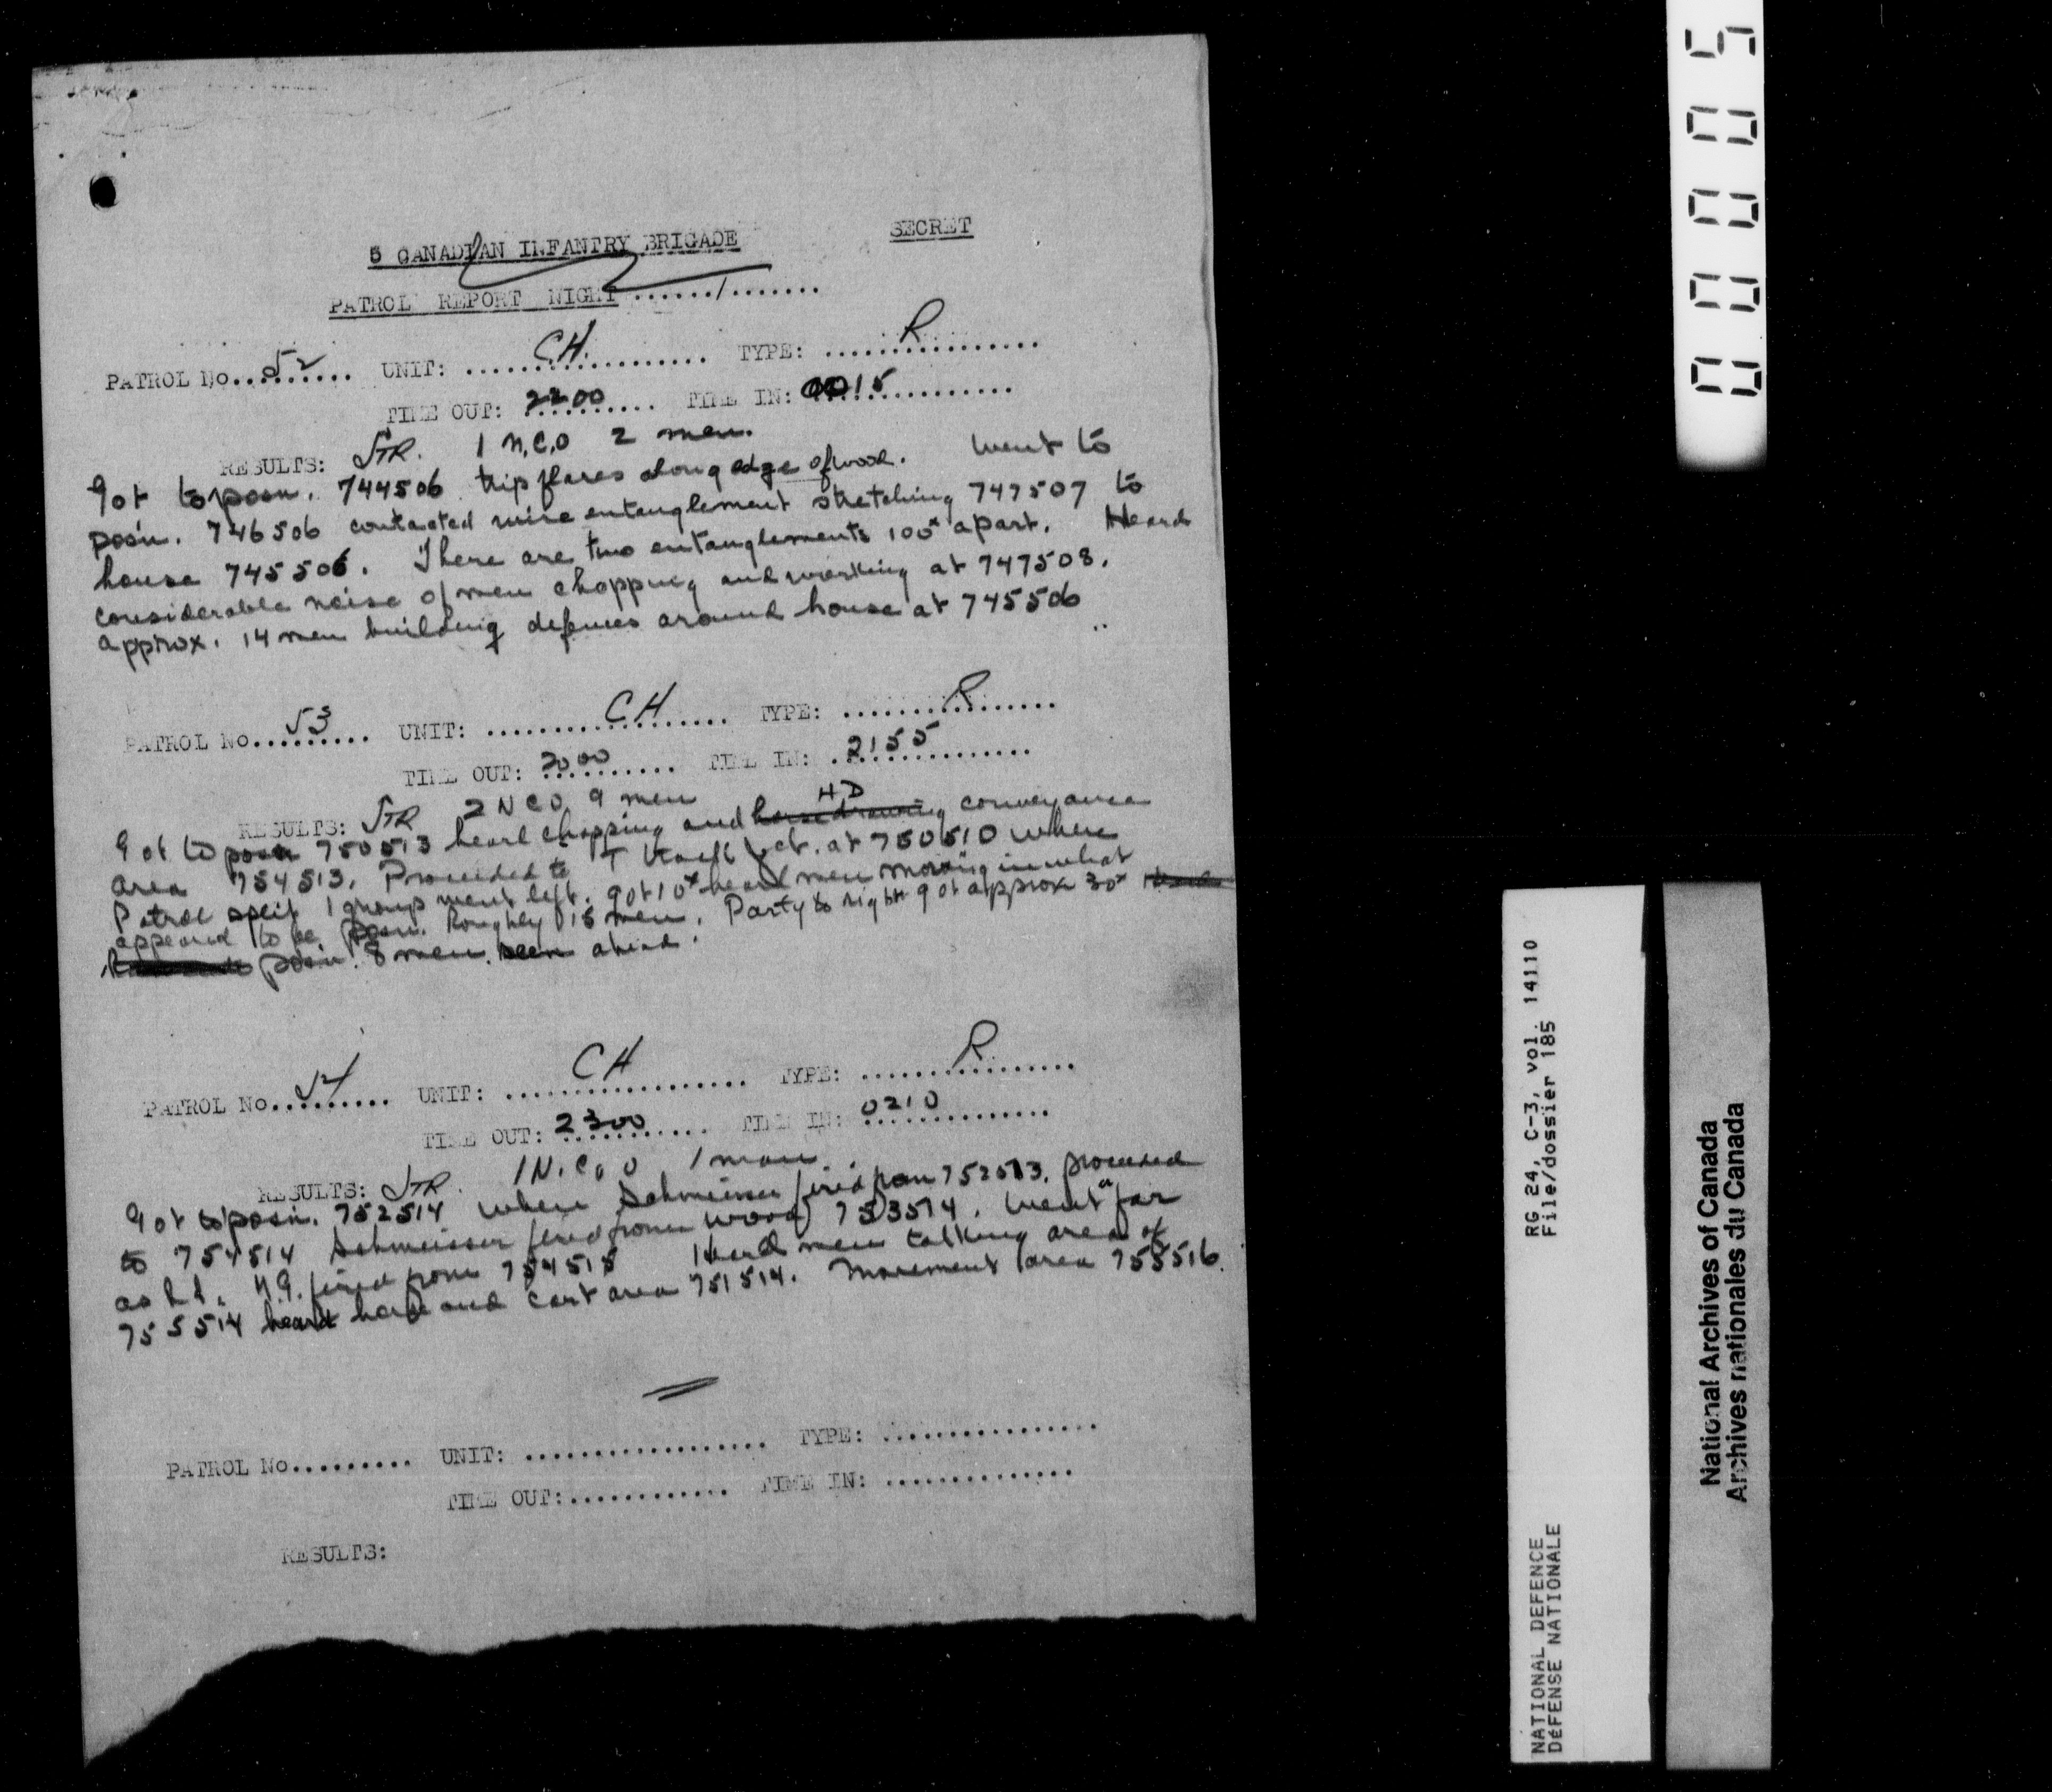 SECRET
5 CANADIAN INFANTRY BRIGADE
PATROL REPORT NIGHT ......./.......
PATROL No. 52 UNIT: CH TYPE: R
TIME OUT: 2200 TIME IN: 0015
RESULTS: STR. 1 N.C.O 2 men.
Got to posn. 744506 trip flares along edge of wood. Went to
posn. 746506 contacted wire entanglement stretching 747507 to
house 745506. There are two entanglements 100x apart. Heard
considerable noise of men chopping and working at 747508.
approx. 14 men building defences around house at 745506
PATROL No. 53 UNIT: CH TYPE: R
TIME OUT: 2000 TIME IN: 2155
RESULTS: STR 2 NCO 9 men
Got to posn 750513 heard chopping and HD conveyance
area 754513. Proceeded to T track jct. at 750510 where
Patrol split 1 group went left. got 10x heard men moving in what
appeared to be posn. Roughly 15 men. Party to right got approx 30x
posn. 8 men seen ahead.
PATROL No. 54 UNIT: CH TYPE: R
TIME OUT: 2300 TIME IN: 0210
RESULTS: STR. 1 N.C.O 1 man.
Got to posn. 752514 where Schmeisser fired from 752513. proceeded
to 754514 Schmeisser fired from wood 753514. Went far
as M.G. fired from 754515 Heard men talking area of
755514 heard horse and cart area 751514. Movement area 755516.
PATROL No......... UNIT: ................... TYPE: .................
TIME OUT:............. TIME IN: ...............
RESULTS:
00005
RG 24, C-3, vol. 14110
File/dossier 185
NATIONAL DEFENCE
DéFENSE NATIONALE
National Archives of Canada
Archives nationales du Canada